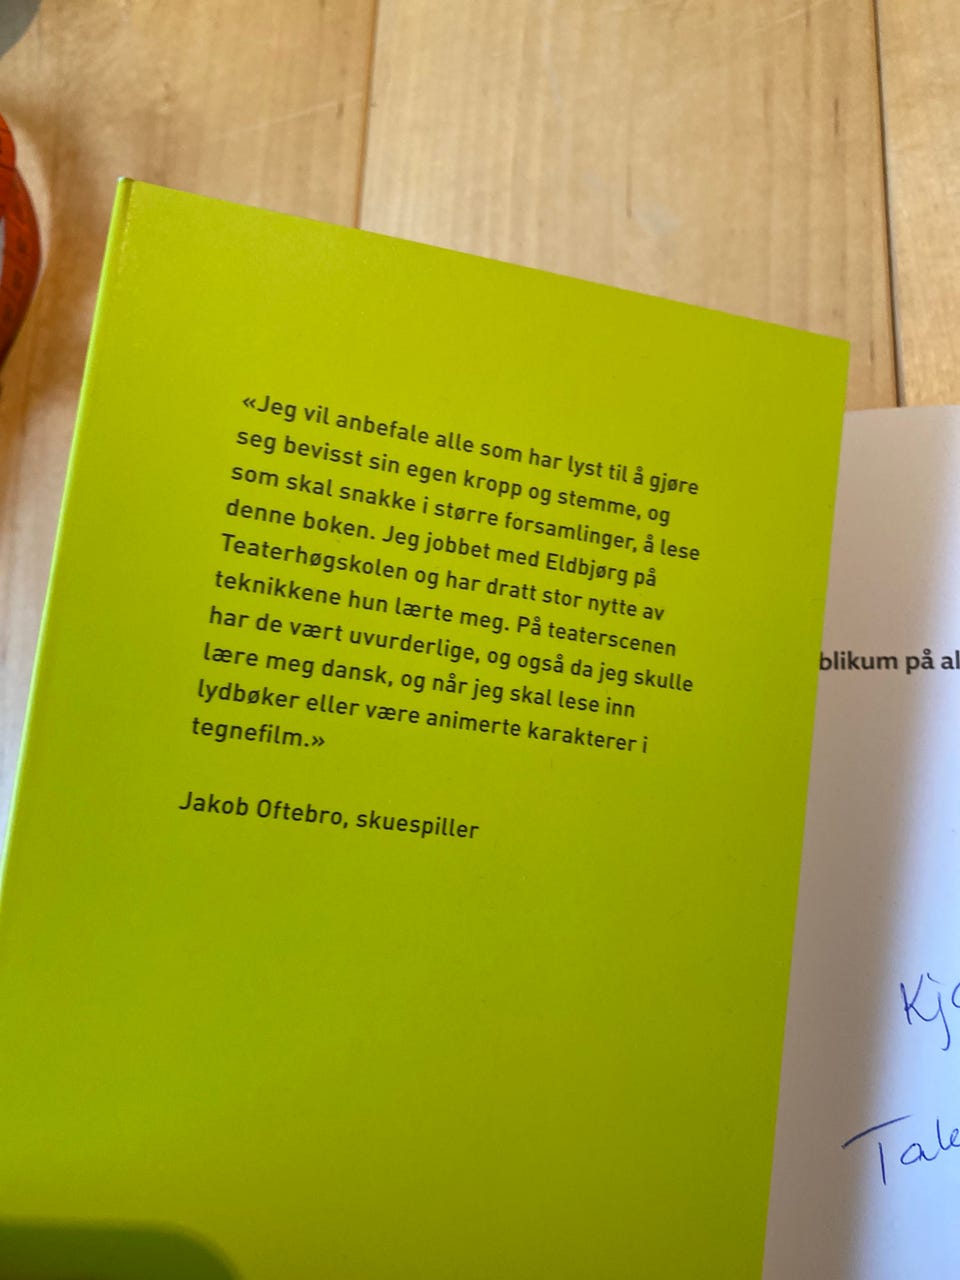 «Jeg vil anbefale alle som har lyst til å gjøre
seg bevisst sin egen kropp og stemme, og
som skal snakke i større forsamlinger, å lese
denne boken. Jeg jobbet med Eldbjørg på
Teaterhøgskolen og har dratt stor nytte av
teknikkene hun lærte meg. På teaterscenen
har de vært uvurderlige, og også da jeg skulle
lære meg dansk, og når jeg skal lese inn
lydbøker eller være animerte karakterer i
tegnefilm.»
Jakob Oftebro, skuespiller
blikum på al